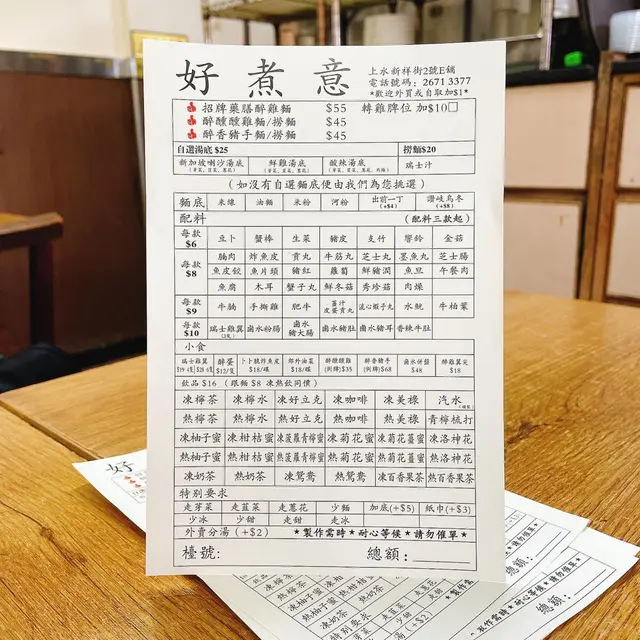 好煮意
上水新祥街2號E鋪
電話號碼：2671 3377
*歡迎外買或自取加$1*
招牌藥膳醉雞麵 $55 轉雞脾位 加$10□
醉醺醺雞麵/撈麵 $45
醉香豬手麵/撈麵 $45
自選湯底 $25 撈麵$20
新加坡喇沙湯底 鮮雞湯底 酸辣湯底 瑞士汁
(如沒有自選麵底便由我們為您挑選)
麵底 米線 油麵 米粉 河粉 出前一丁(+$4) 讚岐烏冬(+$8)
配料 (配料三款起)
每款$6 豆卜 蟹棒 生菜 豬皮 支竹 響鈴 金菇
每款$8 腩肉 炸魚皮 貢丸 牛筋丸 芝士丸 墨魚丸 芝士腸
魚皮餃 魚片頭 豬紅 蘿蔔 鮮豬潤 魚旦 午餐肉
魚腐 木耳 蟹子丸 鮮冬菇 秀珍菇 肉燥
每款$9 牛腩 手撕雞 肥牛 薑汁皮蛋貢丸 流心蝦子丸 水魷 牛柏葉
每款$10 瑞士雞翼 鹵水粉腸 鹵水豬大腸 鹵水豬肚 鹵水豬耳 香辣牛肚
小食
瑞士雞翼 醉蛋$12/隻 卜卜脆炸魚皮$18/碟 郊外油菜$18/碟 醉醺醺雞(例牌)$35 醉香豬手(例牌)$68 鹵水併盤$48 醉雞翼尖$18
飲品 $16 (跟麵 $8 凍熱飲同價)
凍檸茶 凍檸水 凍好立克 凍咖啡 凍美祿 汽水
熱檸茶 熱檸水 熱好立克 熱咖啡 熱美祿 青檸梳打
凍柚子蜜 凍柑桔蜜 凍菠蘿青檸蜜 凍菊花蜜 凍菊花薑蜜 凍洛神花
熱柚子蜜 熱柑桔蜜 熱菠蘿青檸蜜 熱菊花蜜 熱菊花薑蜜 熱洛神花
凍奶茶 熱奶茶 凍鴛鴦 熱鴛鴦 凍百香果茶 熱百香果茶
特別要求
走芽菜 走韮菜 走蔥花 少麵 加底(+$5) 紙巾(+$3)
少冰 少甜 走甜 走冰
外賣分湯 (+$2) ★製作需時★耐心等候★請勿催單★
檯號: 總額: